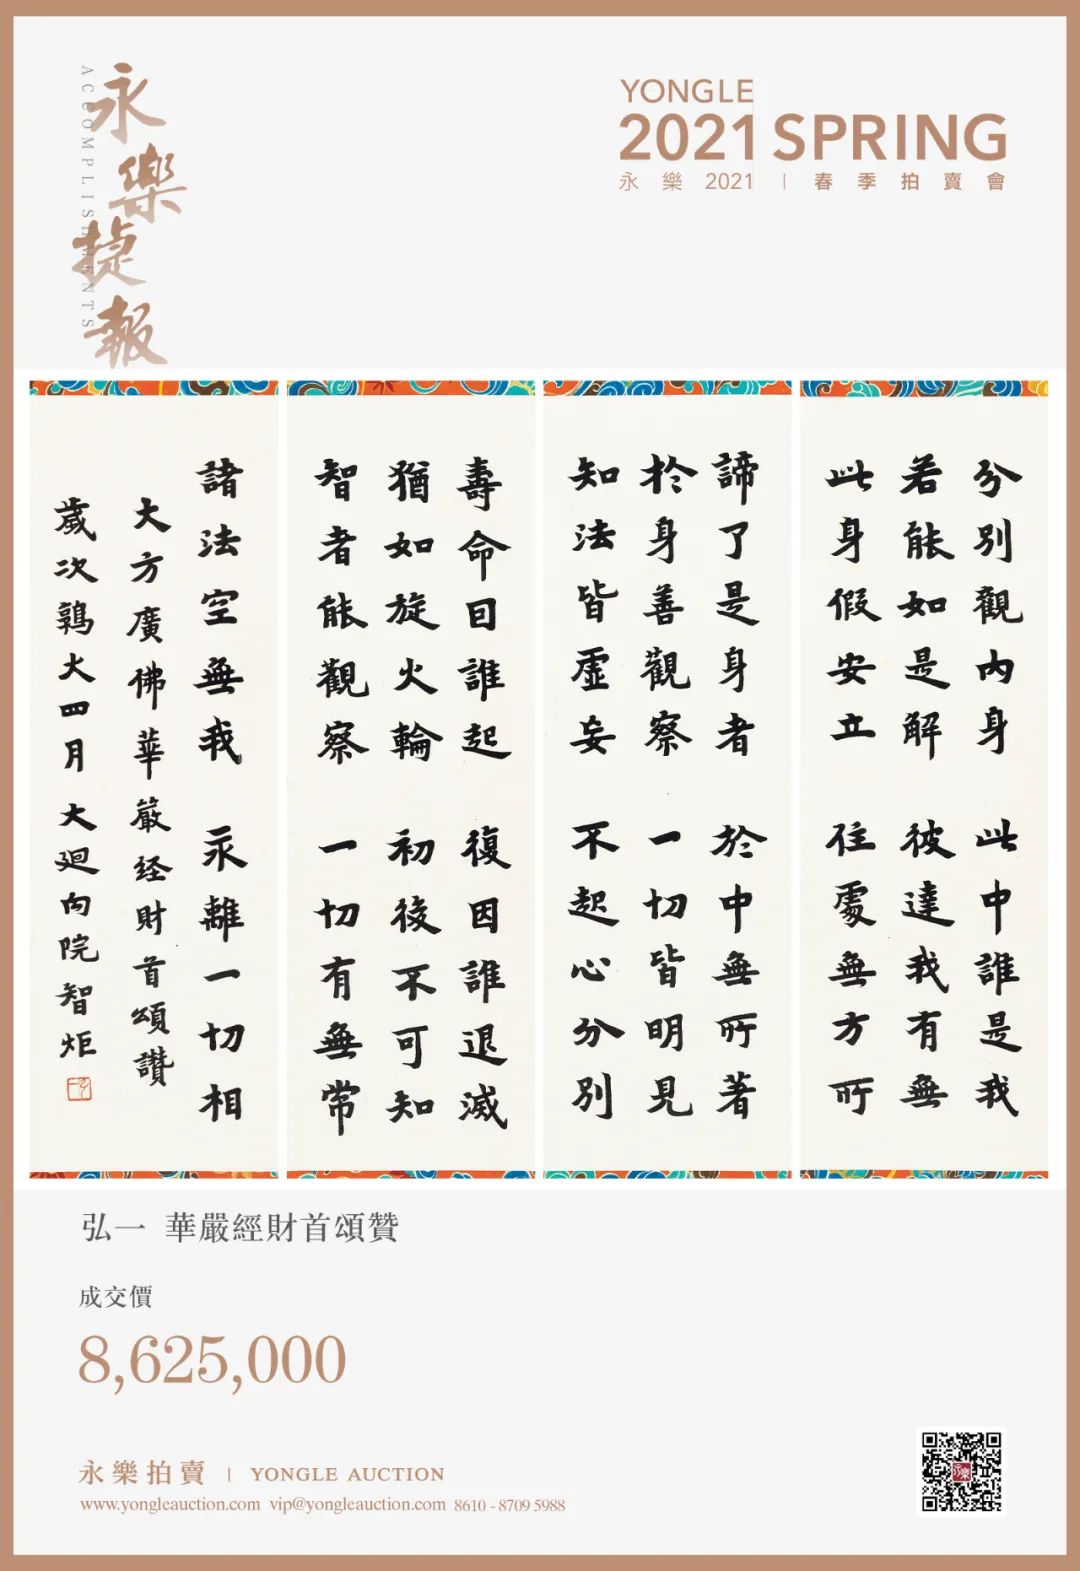 永樂捷報
ACCOMPLISHMENTS
YONGLE
2021 SPRING
永樂 2021 | 春季拍賣會
分別觀內身 此中誰是我
若能如是解 彼達我有無
此身假安立 住處無方所
諦了是身者 於中無所著
於身善觀察 一切皆明見
知法皆虛妄 不起心分別
壽命因誰起 復因誰退滅
猶如旋火輪 初後不可知
智者能觀察 一切有無常
諸法空無我 永離一切相
大方廣佛華嚴経財首頌讚
歲次鶉火四月 大迴向院智炬
弘一 華嚴經財首頌贊
成交價
8,625,000
永樂拍賣 | YONGLE AUCTION
www.yongleauction.com vip@yongleauction.com 8610 - 8709 5988